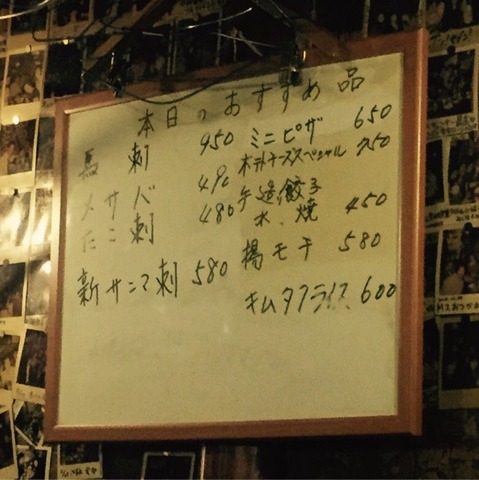 本日のおすすめ品
馬刺 950
〆サバ 490
たこ刺 480
新サンマ刺 580
ミニピザ 650
ポテトチーズスペシャル 750
手造餃子
水、焼 450
揚モチ 580
キムタクライス 600